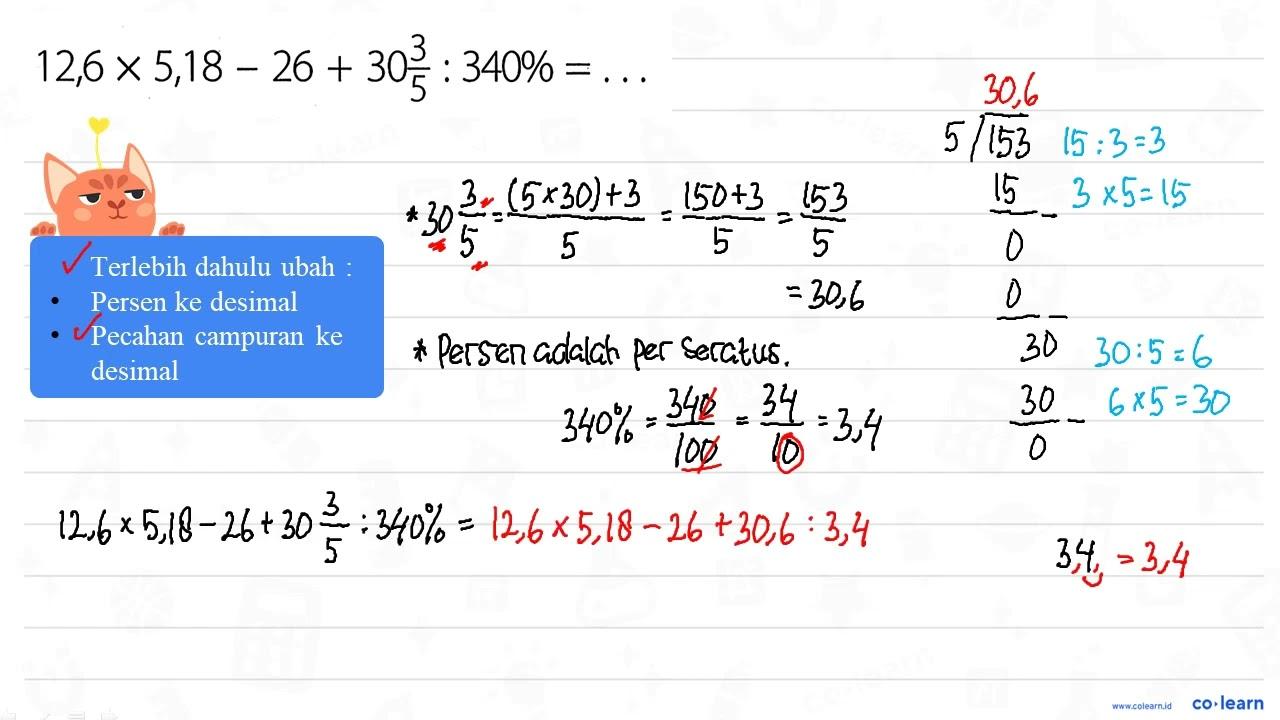 12,6 × 5,18 – 26 + 30 3/5 : 340% = . . .
Terlebih dahulu ubah :
• Persen ke desimal
• Pecahan campuran ke
desimal
* 30 3/5 = (5×30)+3/5 = 150+3/5 = 153/5
= 30,6
* Persen adalah per seratus.
340% = 340/100 = 34/10 = 3,4
12,6 × 5,18 – 26 + 30 3/5 : 340% = 12,6 × 5,18 – 26 + 30,6 : 3,4
30,6
5 / 153 15 : 3 = 3
15 – 3 × 5 = 15
0
0 –
30 30 : 5 = 6
30 – 6 × 5 = 30
0
3,4, = 3,4
www.colearn.id co·learn